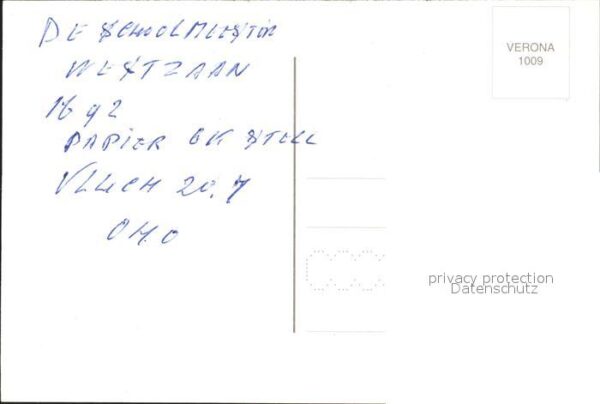 DE SCHOOLMEESTER
WESTZAAN
1692
PAPIER
VLUCH 20.7
OM.O
VERONA
1009
privacy protection
Datenschutz